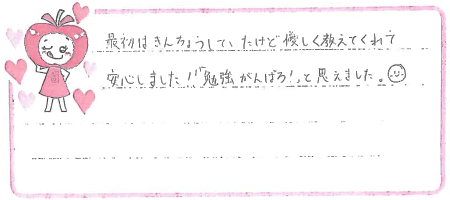 最初はきんちょうしていたけど優しく教えてくれて
安心しました！「勉強がんばろ！」と思えました。